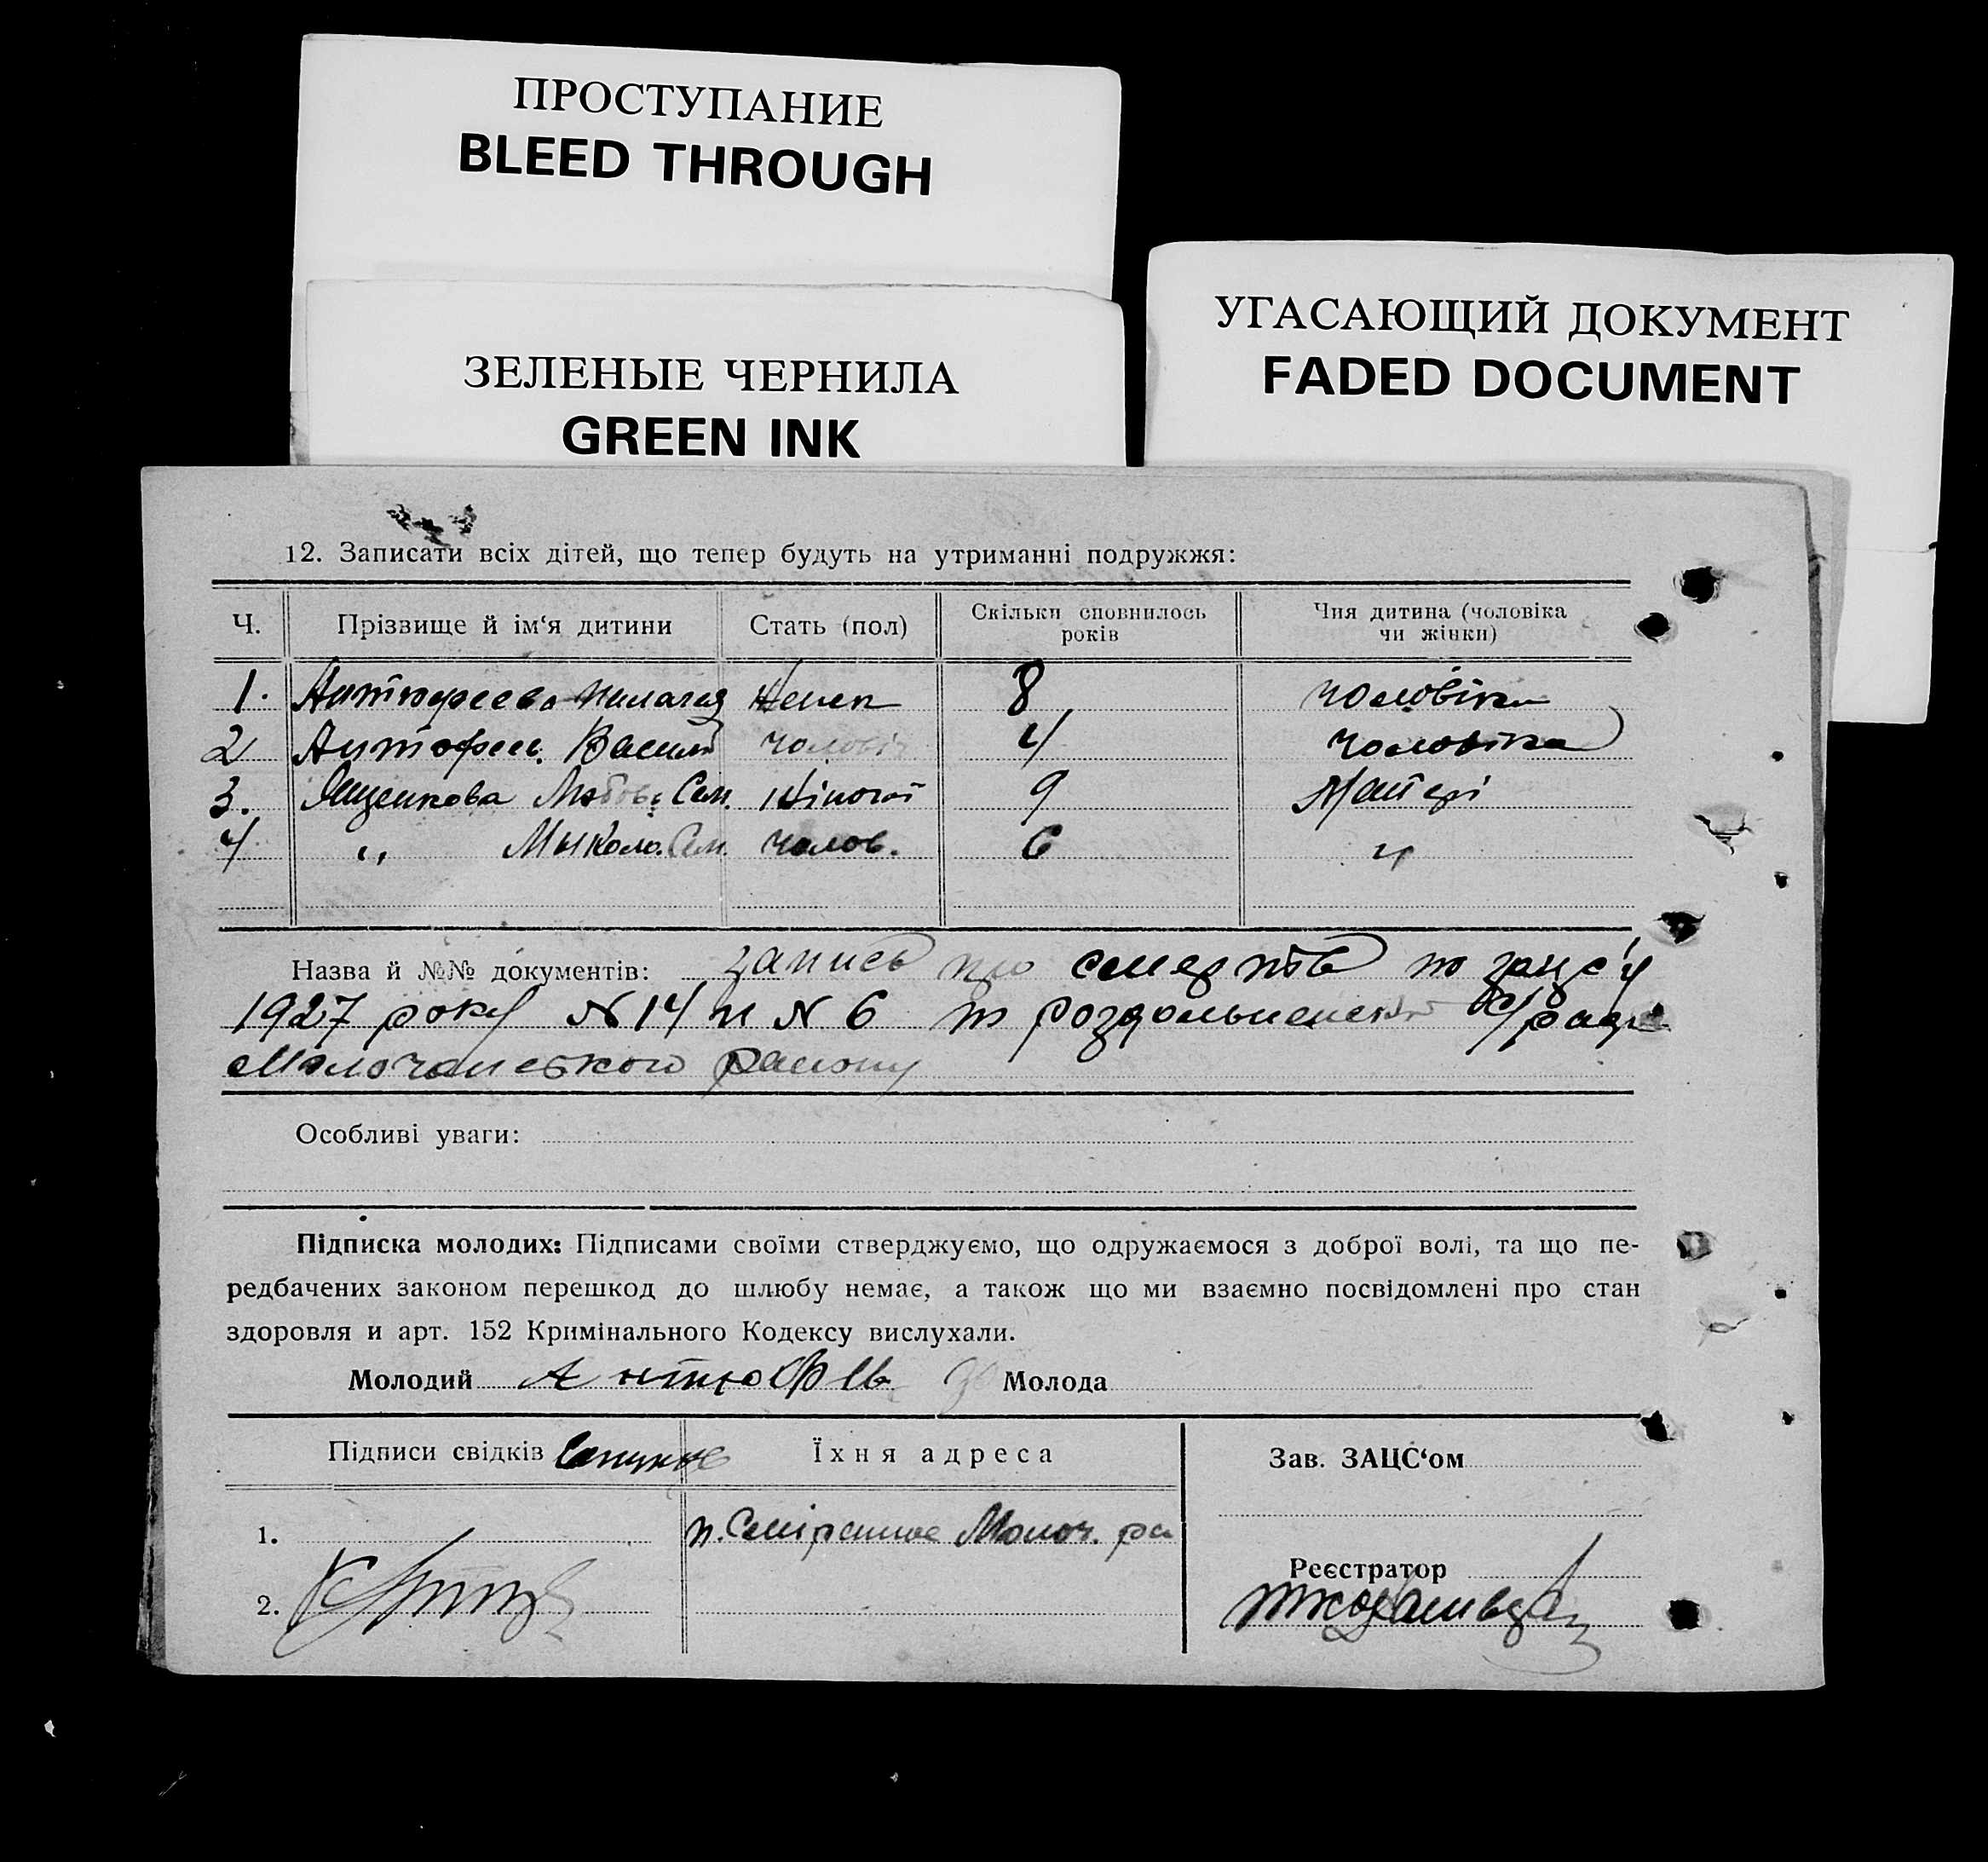 ПРОСТУПАНИЕ
BLEED THROUGH
ЗЕЛЕНЫЕ ЧЕРНИЛА
GREEN INK
УГАСАЮЩИЙ ДОКУМЕНТ
FADED DOCUMENT
12. Записати всіх дітей, що тепер будуть на утриманні подружжя:
Ч. Прізвище й ім‘я дитини Стать (пол) Скільки сповнилось років Чия дитина (чоловіка чи жінки)
1. Антюфеева 8 чоловіка
2 Антюфеев Василь чоловіч 4 чоловіка
3. Ященкова Любовь Сем. жіночої 9 Матері
4 „ Мыкола. Сем. чолов. 6 „
Назва й №№ документів: запись про смерть по зацс'у
1927 року N 14 и N 6 по роздольненській с/раді
Молочанського району
Особливі уваги:
Підписка молодих: Підписами своїми стверджуємо, що одружаємося з доброї волі, та що пе-
редбачених законом перешкод до шлюбу немає, а також що ми взаємно посвідомлені про стан
здоровля и арт. 152 Кримінального Кодексу вислухали.
Молодий Антюфев Молода
Підписи свідків Їхня адреса Зав. ЗАЦС‘ом
1. Молоч. ра
Реєстратор
2.